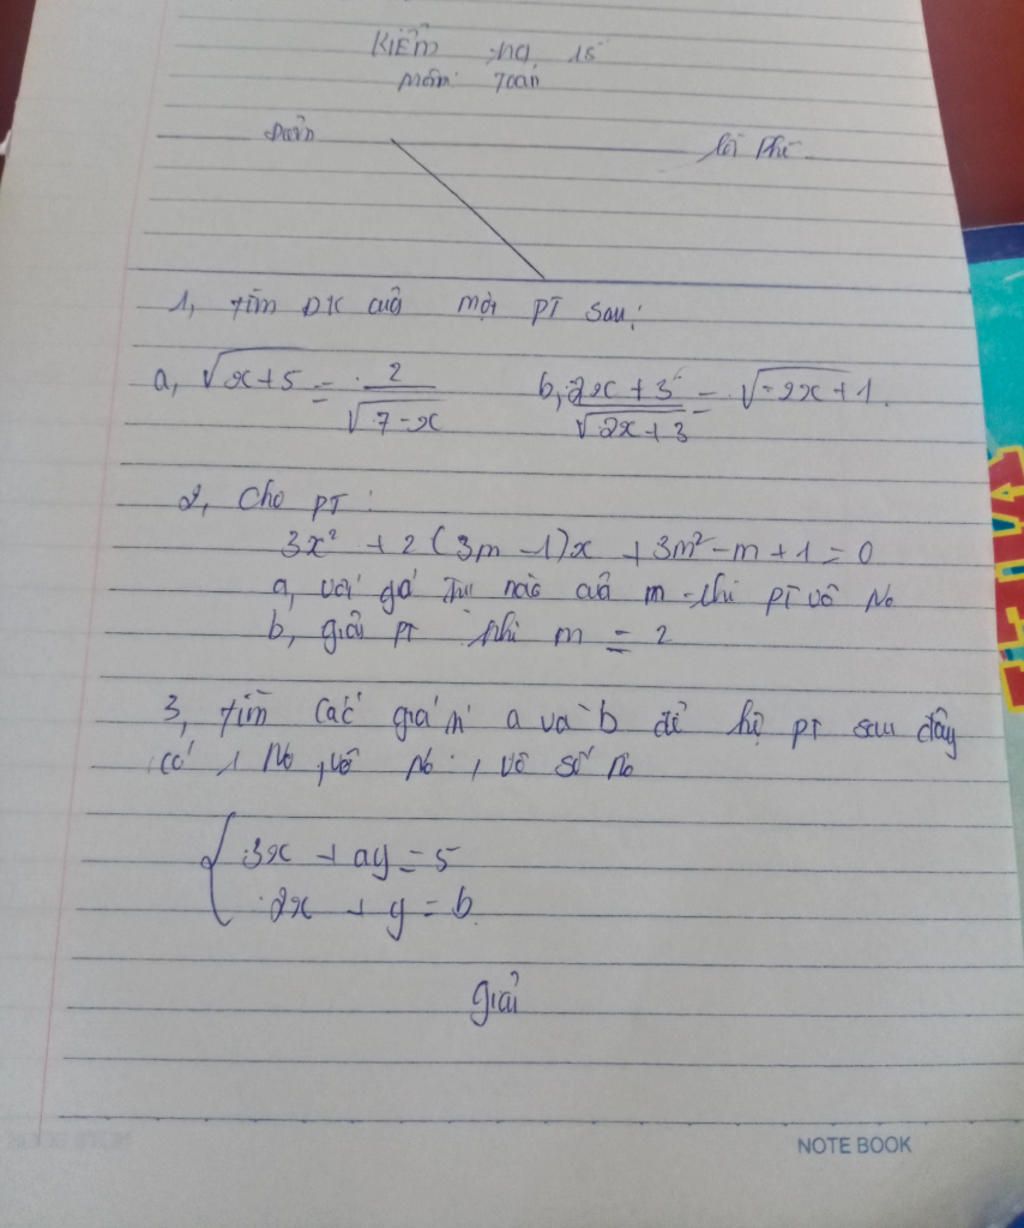 Kiểm 15
môn: Toán
Điểm lời phê
1, tìm ĐK của mỗi PT sau:
a, √x+5 = 2/√7-x b, 2x+3/√2x+3 = √-2x+1.
2, Cho PT:
3x² + 2(3m-1)x + 3m²-m+1=0
a, với giá nào của m thì PT vô No
b, giải PT khi m = 2
3, tìm các giá trị a và b để hệ PT sau đây
có 1 No, vô No, vô số No
3x + ay = 5
2x + y = b.
giải
NOTE BOOK